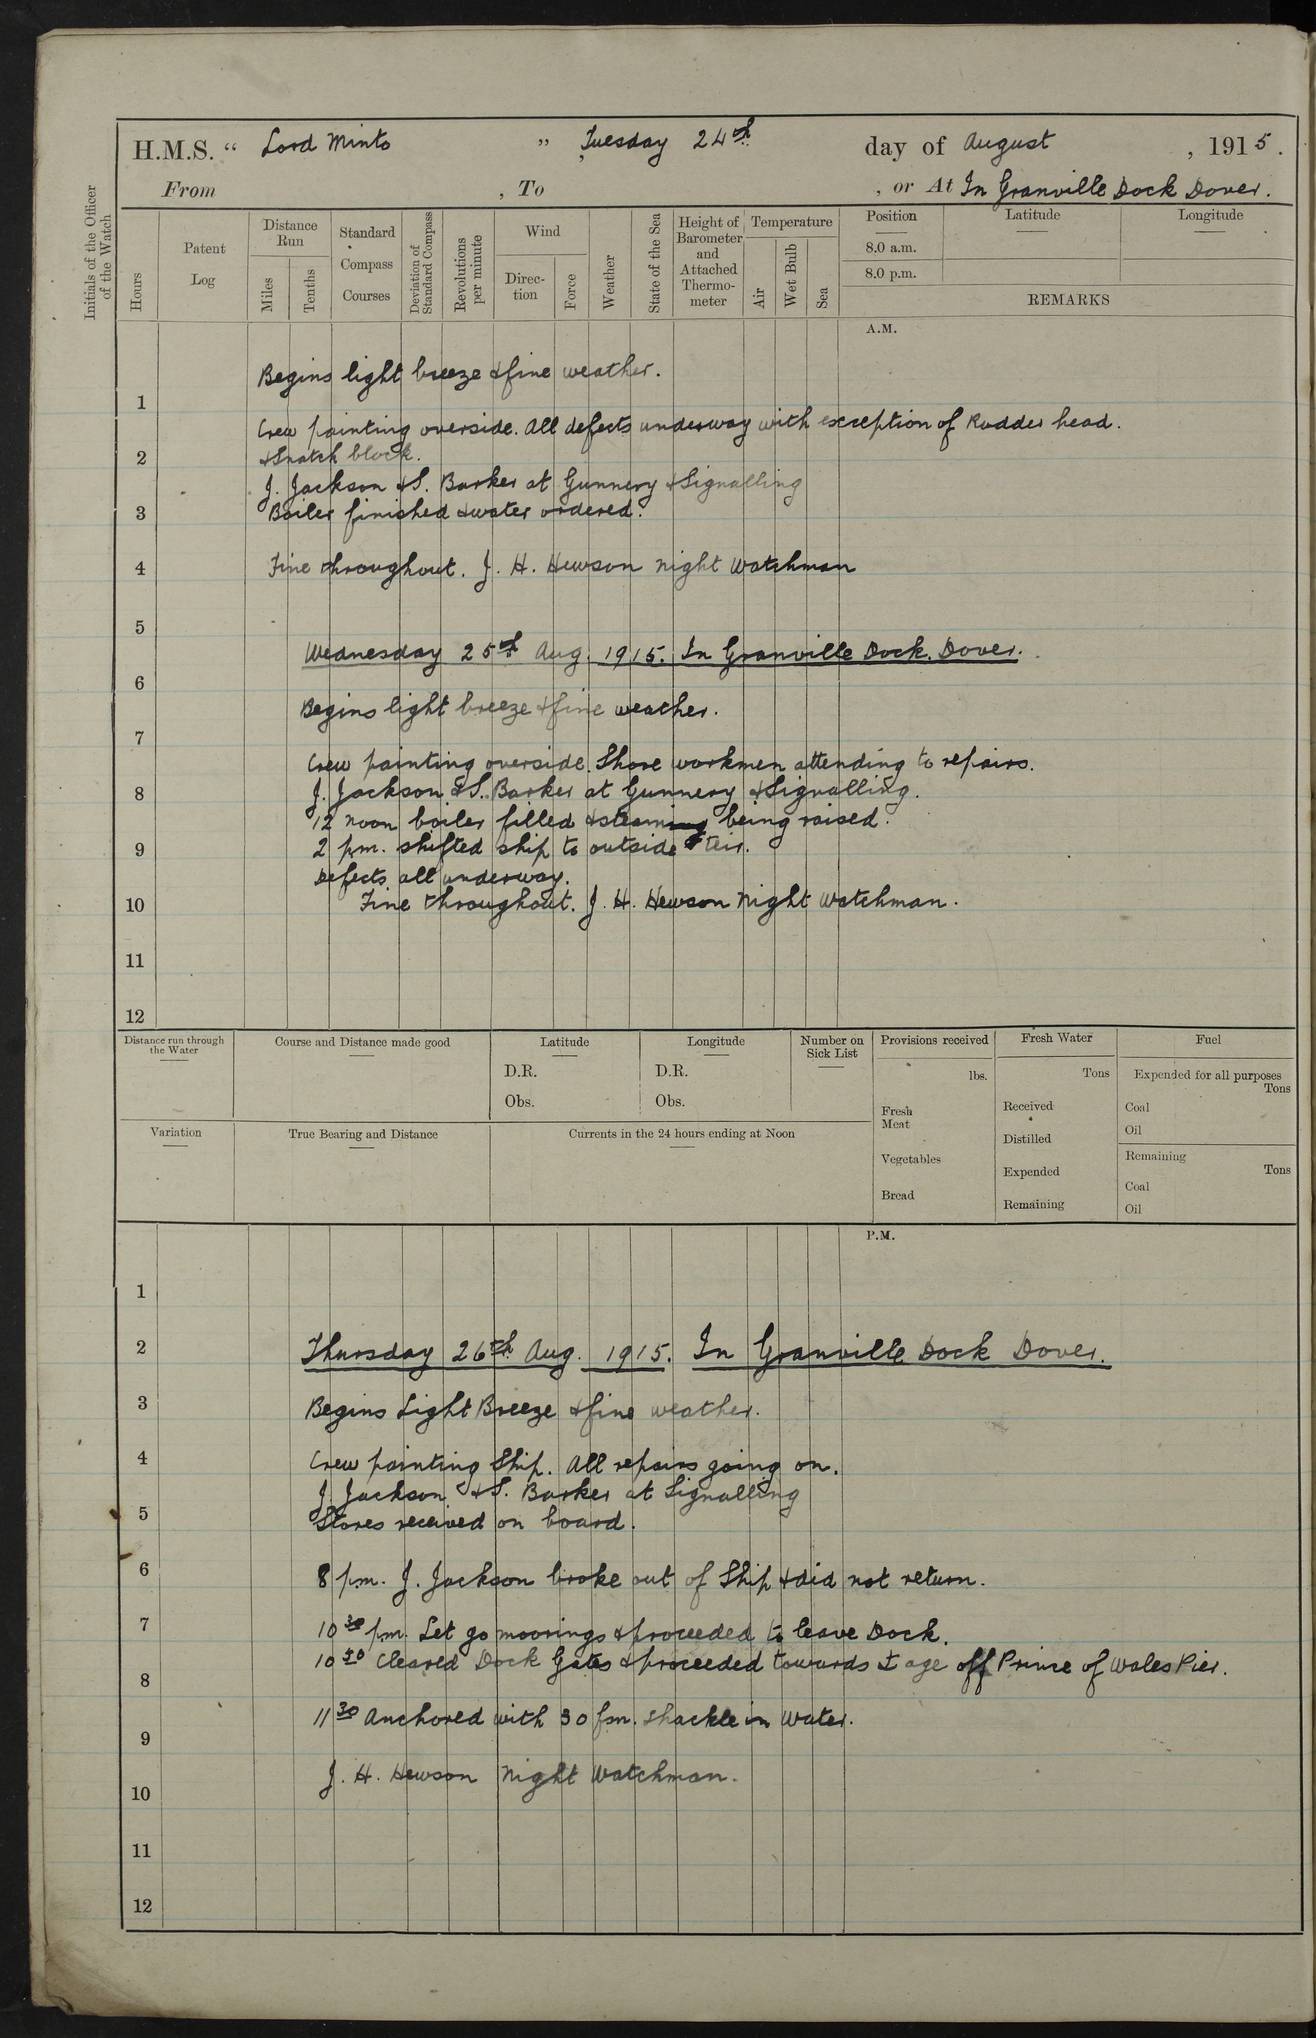 H.M.S. “ Lord Minto ” Tuesday 24th day of August , 1915.
From , To , or At In Granville Dock Dover.
Initials of the Officer of the Watch
Hours
Patent Log
Distance Run
Miles
Tenths
Standard Compass Courses
Deviation of Standard Compass
Revolutions per minute
Wind
Direction
Force
Weather
State of the Sea
Height of Barometer and Attached Thermometer
Temperature
Air
Wet Bulb
Sea
Position
Latitude
Longitude
8.0 a.m.
8.0 p.m.
REMARKS
A.M.
Begins light breeze & fine weather.
1
Crew painting overside. All defects underway with exception of Rudder head.
2 & Snatch block.
J. Jackson & S. Barker at Gunnery & Signalling
3 Boiler finished & water ordered.
4 Fine throughout. J. H. Hewson night Watchman
5
Wednesday 25th Aug. 1915. In Granville Dock. Dover.
6
Begins light breeze & fine weather.
7
Crew painting overside. Shore workmen attending to repairs.
8 J. Jackson & S. Barker at Gunnery & Signalling.
12 noon boiler filled & steam being raised.
9 2 pm. shifted ship to outside teir.
Defects all underway.
10 Fine throughout. J. H. Hewson Night Watchman.
11
12
Distance run through the Water
Course and Distance made good
Latitude
D.R.
Obs.
Longitude
D.R.
Obs.
Number on Sick List
Provisions received
lbs.
Fresh Meat
Vegetables
Bread
Fresh Water
Tons
Received
Distilled
Expended
Remaining
Fuel
Expended for all purposes
Tons
Coal
Oil
Remaining
Tons
Coal
Oil
Variation
True Bearing and Distance
Currents in the 24 hours ending at Noon
P.M.
1
2 Thursday 26th Aug. 1915. In Granville Dock Dover.
3 Begins Light Breeze & fine weather.
4 Crew painting Ship. All repairs going on.
J. Jackson & S. Barker at Signalling
5 Stores received on board.
6 8 pm. J. Jackson broke out of Ship & did not return.
7 10 30 pm. Let go moorings & proceeded to leave Dock.
10 50 Cleared Dock Gates & proceeded towards ⚓ age off Prince of Wales Pier.
8
11 30 Anchored with 30 fm. shackle in water.
9
J. H. Hewson Night Watchman.
10
11
12